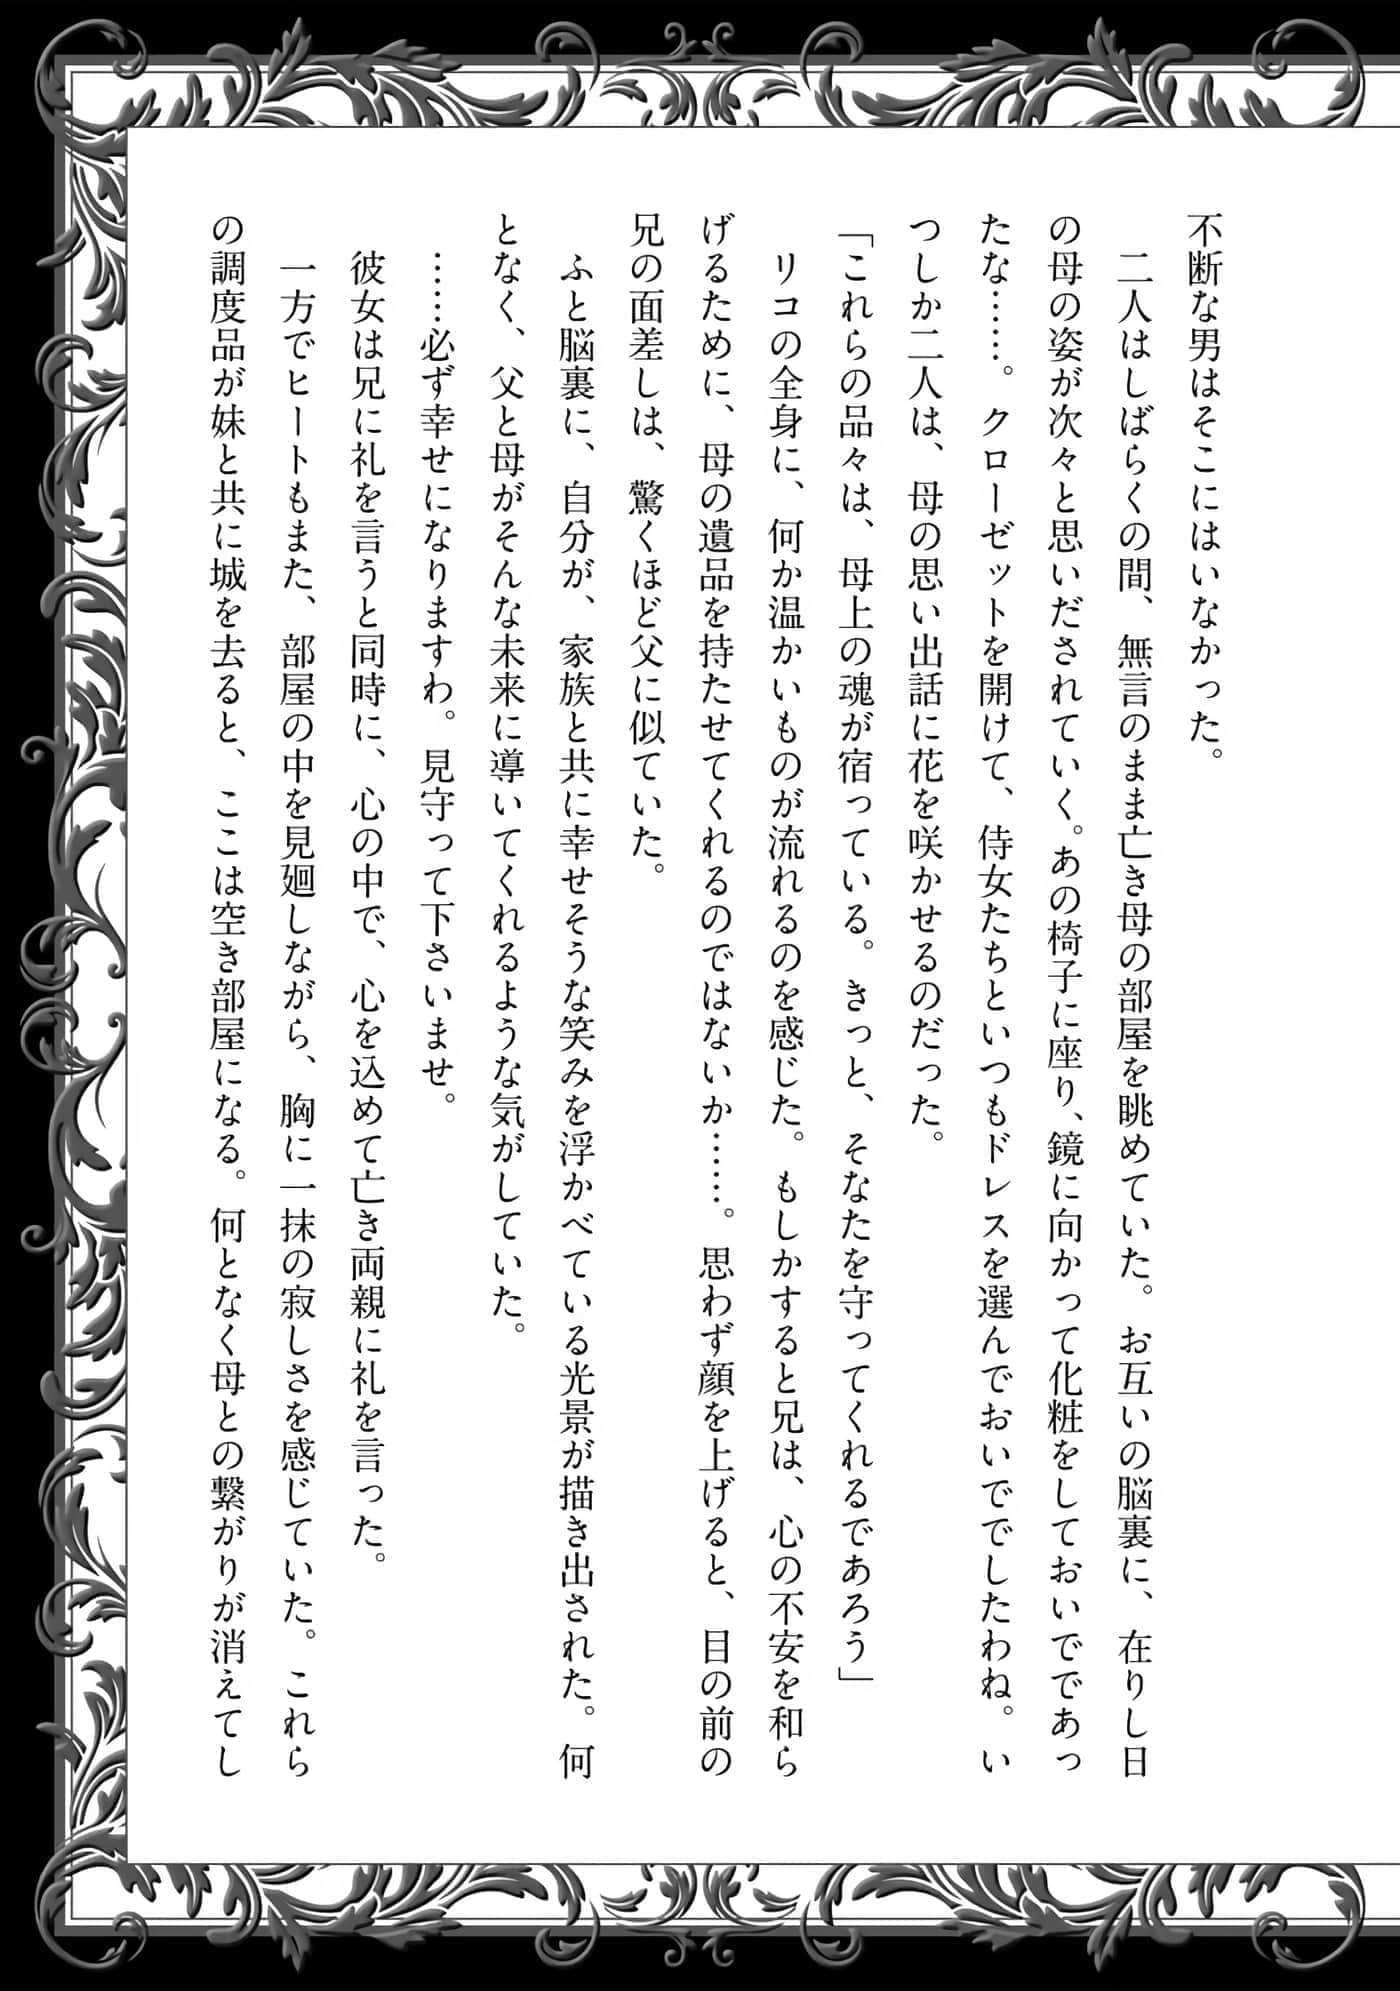 不断な男はそこにはいなかった。
　二人はしばらくの間、無言のまま亡き母の部屋を眺めていた。お互いの脳裏に、在りし日
の母の姿が次々と思いだされていく。あの椅子に座り、鏡に向かって化粧をしておいでであっ
たな……。クローゼットを開けて、侍女たちといつもドレスを選んでおいででしたわね。い
つしか二人は、母の思い出話に花を咲かせるのだった。
「これらの品々は、母上の魂が宿っている。きっと、そなたを守ってくれるであろう」
　リコの全身に、何か温かいものが流れるのを感じた。もしかすると兄は、心の不安を和ら
げるために、母の遺品を持たせてくれるのではないか……。思わず顔を上げると、目の前の
兄の面差しは、驚くほど父に似ていた。
　ふと脳裏に、自分が、家族と共に幸せそうな笑みを浮かべている光景が描き出された。何
となく、父と母がそんな未来に導いてくれるような気がしていた。
　……必ず幸せになりますわ。見守って下さいませ。
　彼女は兄に礼を言うと同時に、心の中で、心を込めて亡き両親に礼を言った。
　一方でヒートもまた、部屋の中を見廻しながら、胸に一抹の寂しさを感じていた。これら
の調度品が妹と共に城を去ると、ここは空き部屋になる。何となく母との繋がりが消えてし